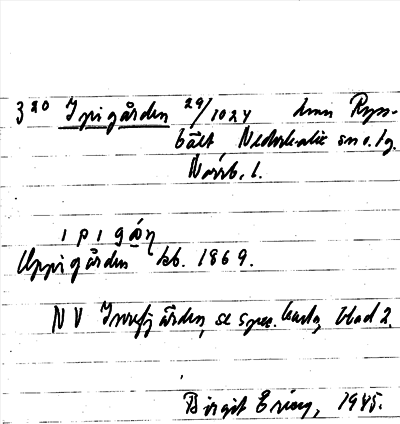 320 Ypigården 29/1024 hmn Ryss-
bält Nederkalix sn o. lg.
Norrb. l.
ı p ı g å n
Uppigården kb. 1869.
NV Innefj ärden, se spec. karta, blad 2.
Birgit Ericz, 1985.